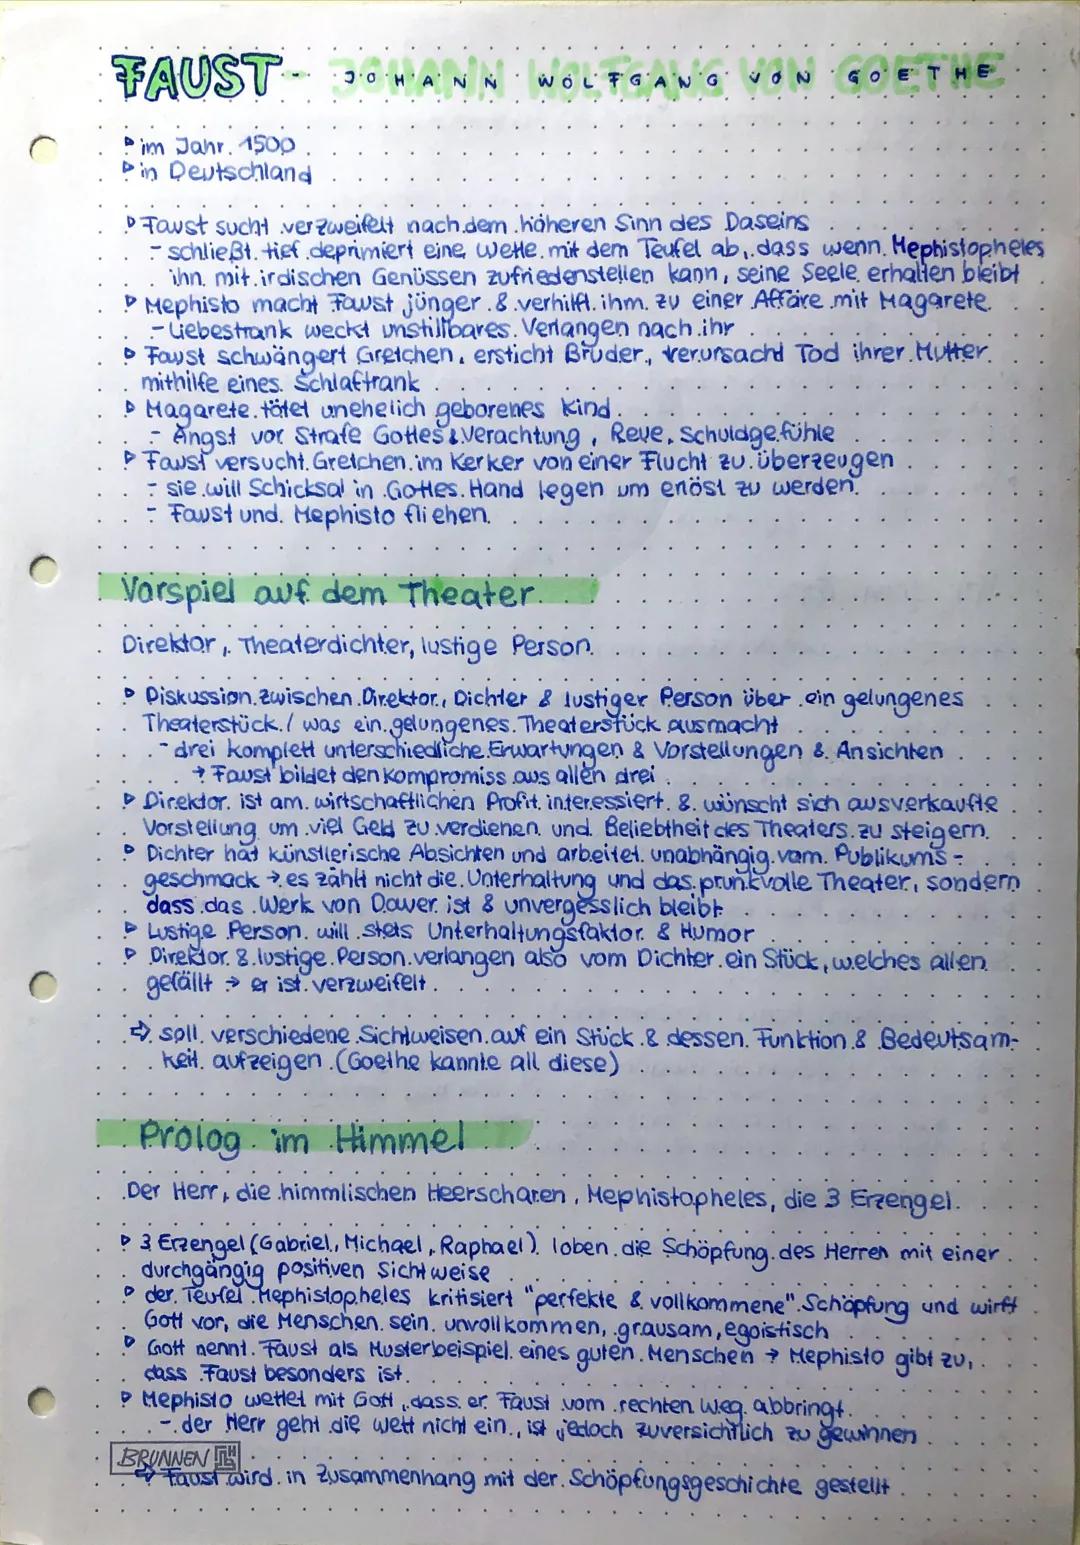 FAUST - JOHANN WOLFGANG VON GOETHE
▹ im Jahr 1500
▹ in Deutschland
▹ Faust sucht verzweifelt nach dem höheren Sinn des Daseins
- schließt tief deprimiert eine Wette mit dem Teufel ab, dass wenn Mephistopheles
ihn mit irdischen Genüssen zufriedenstellen kann, seine Seele erhalten bleibt
▹ Mephisto macht Faust jünger & verhilft ihm zu einer Affäre mit Magarete
- Liebestrank weckt unstillbares Verlangen nach ihr
▹ Faust schwängert Gretchen, ersticht Bruder, verursacht Tod ihrer Mutter
mithilfe eines Schlaftrank
▹ Magarete tötet unehelich geborenes Kind
- Angst vor Strafe Gottes & Verachtung, Reue, Schuldgefühle
▹ Faust versucht Gretchen im Kerker von einer Flucht zu überzeugen
- sie will Schicksal in Gottes Hand legen um erlöst zu werden
- Faust und Mephisto fliehen
Vorspiel auf dem Theater
Direktor, Theaterdichter, lustige Person
▹ Diskussion zwischen Direktor, Dichter & lustiger Person über ein gelungenes
Theaterstück / was ein gelungenes Theaterstück ausmacht
- drei komplett unterschiedliche Erwartungen & Vorstellungen & Ansichten
→ Faust bildet den Kompromiss aus allen drei
▹ Direktor ist am wirtschaftlichen Profit interessiert & wünscht sich ausverkaufte
Vorstellung um viel Geld zu verdienen und Beliebtheit des Theaters zu steigern
▹ Dichter hat künstlerische Absichten und arbeitet unabhängig vom Publikums-
geschmack → es zählt nicht die Unterhaltung und das prunkvolle Theater, sondern
dass das Werk von Dauer ist & unvergesslich bleibt
▹ Lustige Person will stets Unterhaltungsfaktor & Humor
▹ Direktor & lustige Person verlangen also vom Dichter ein Stück, welches allen
gefällt → er ist verzweifelt
⇨ soll verschiedene Sichtweisen auf ein Stück & dessen Funktion & Bedeutsam-
keit aufzeigen (Goethe kannte all diese)
Prolog im Himmel
Der Herr, die himmlischen Heerscharen, Mephistopheles, die 3 Erzengel
▹ 3 Erzengel (Gabriel, Michael, Raphael) loben die Schöpfung des Herren mit einer
durchgängig positiven Sichtweise
▹ der Teufel Mephistopheles kritisiert "perfekte & vollkommene" Schöpfung und wirft
Gott vor, die Menschen sein unvollkommen, grausam, egoistisch
▹ Gott nennt Faust als Musterbeispiel eines guten Menschen → Mephisto gibt zu,
dass Faust besonders ist
▹ Mephisto wettet mit Gott, dass er Faust vom rechten Weg abbringt
- der Herr geht die Wett nicht ein, ist jedoch zuversichtlich zu gewinnen
BRUNNEN
⇨ Faust wird in Zusammenhang mit der Schöpfungsgeschichte gestellt